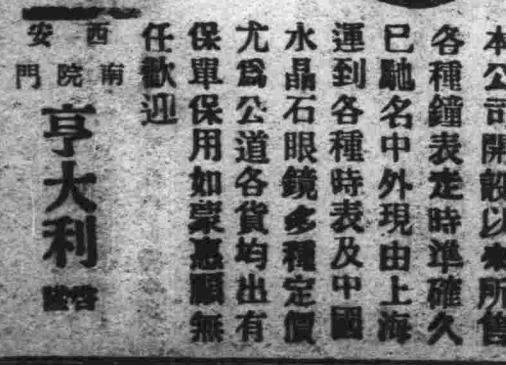 本公司開設以來所售
各種鐘表走時準確久
已馳名中外現由上海
運到各種時表及中國
水晶石眼鏡多種定價
尤爲公道各貨均出有
保單保用如蒙惠顧無
任歡迎
西安
南院門
亨大利